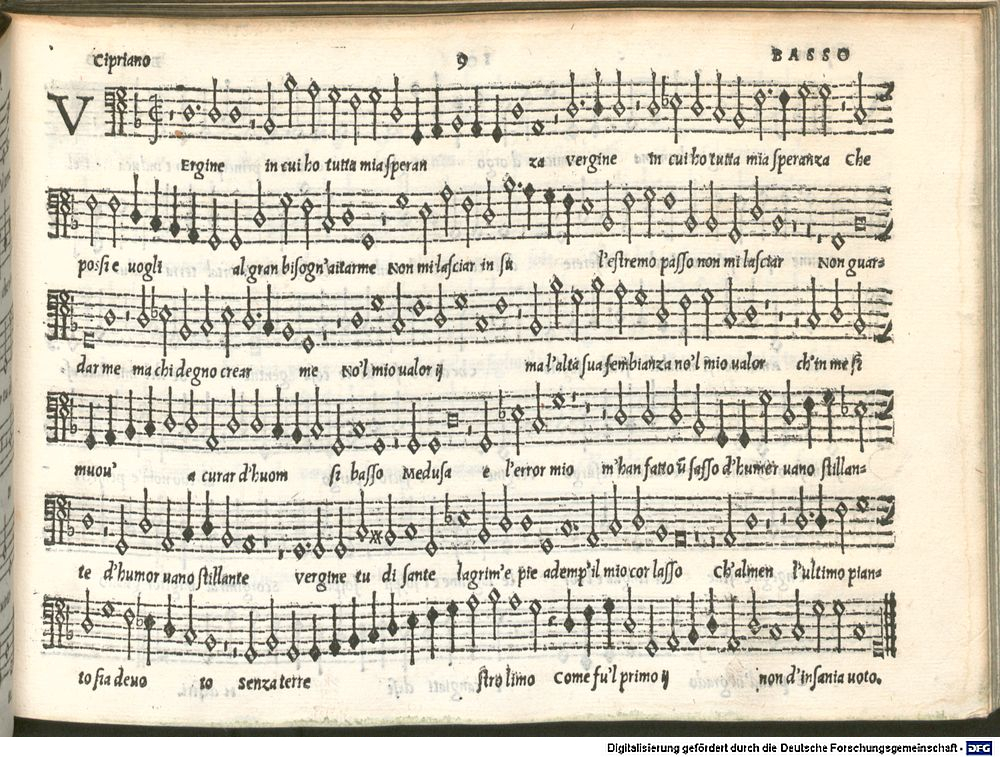 Cipriano 9 BASSO
V
Ergine in cui ho tutta mia speran za vergine in cui ho tutta mia speranza Che
possi e vogli al gran bisogn'aitarme Non mi lasciar in sù l'estremo passo non mi lasciar Non guar-
dar me ma chi degno crear me No'l mio valor ij ma l'alta sua sembianza no'l mio valor ch'in me si
muou' a curar d'huom si basso Medusa e l'error mio m'han fatto ũ sasso d'humor vano stillan-
te d'humor vano stillante vergine tu di sante lagrim'e pie ademp'il mio cor lasso Ch'almen l'ultimo pian-
to sia devo to senza terre stro limo Come fu'l primo ij non d'insania voto.
Digitalisierung gefördert durch die Deutsche Forschungsgemeinschaft - DFG